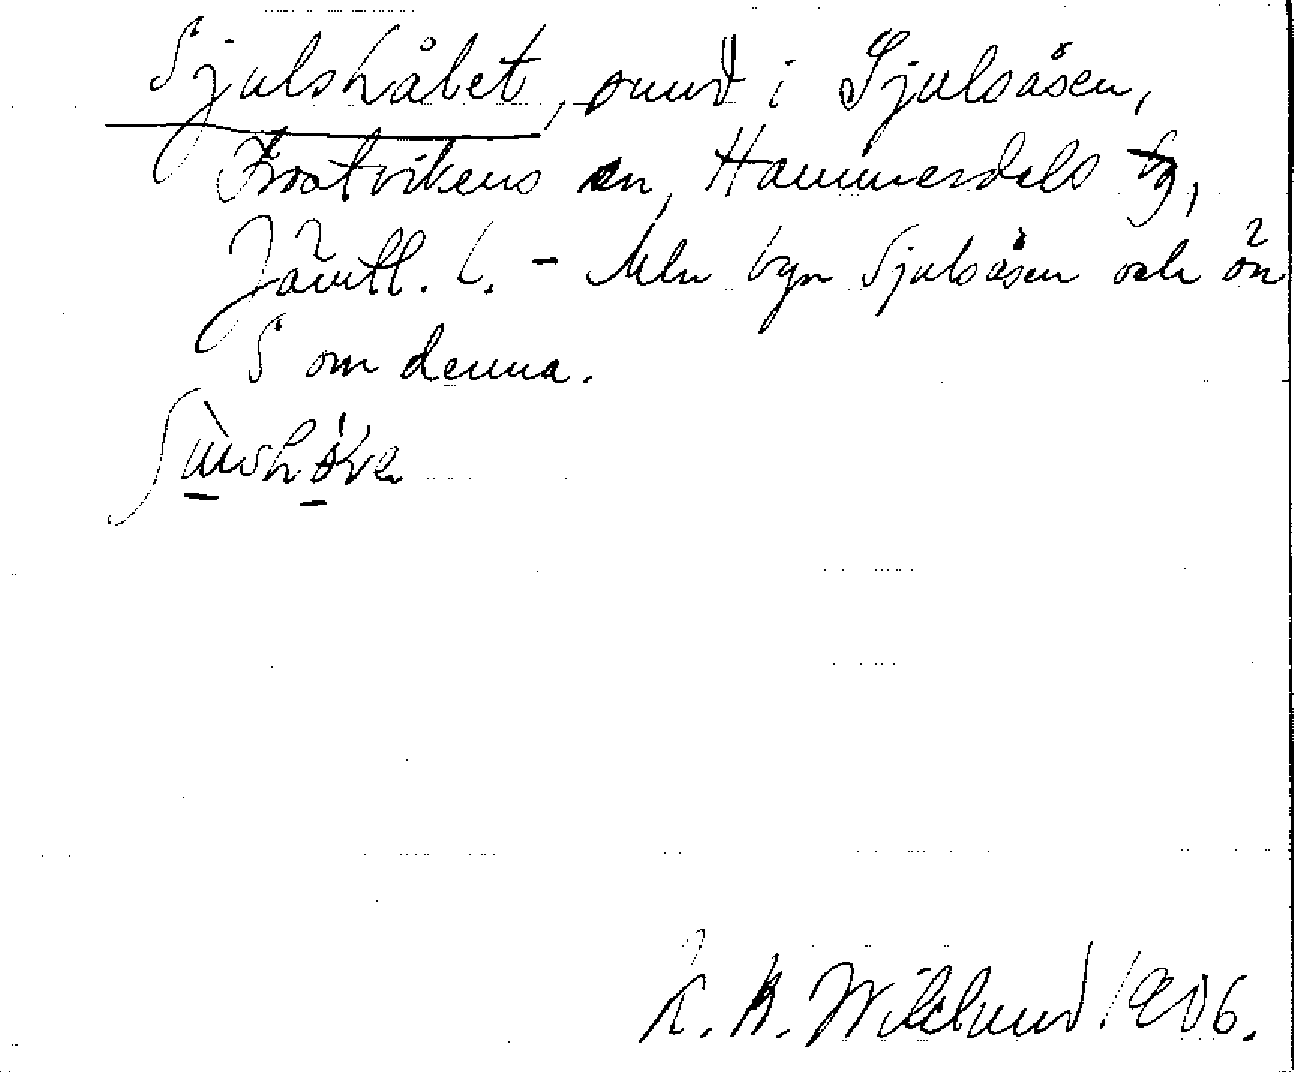 Sjulshålet, sund i Sjulsåsen,
Frostvikens sn, Hammerdals tg,
Jämtl. l. - Mln byn Sjulsåsen och ön
S om denna.
K. B. Wiklund 1906.